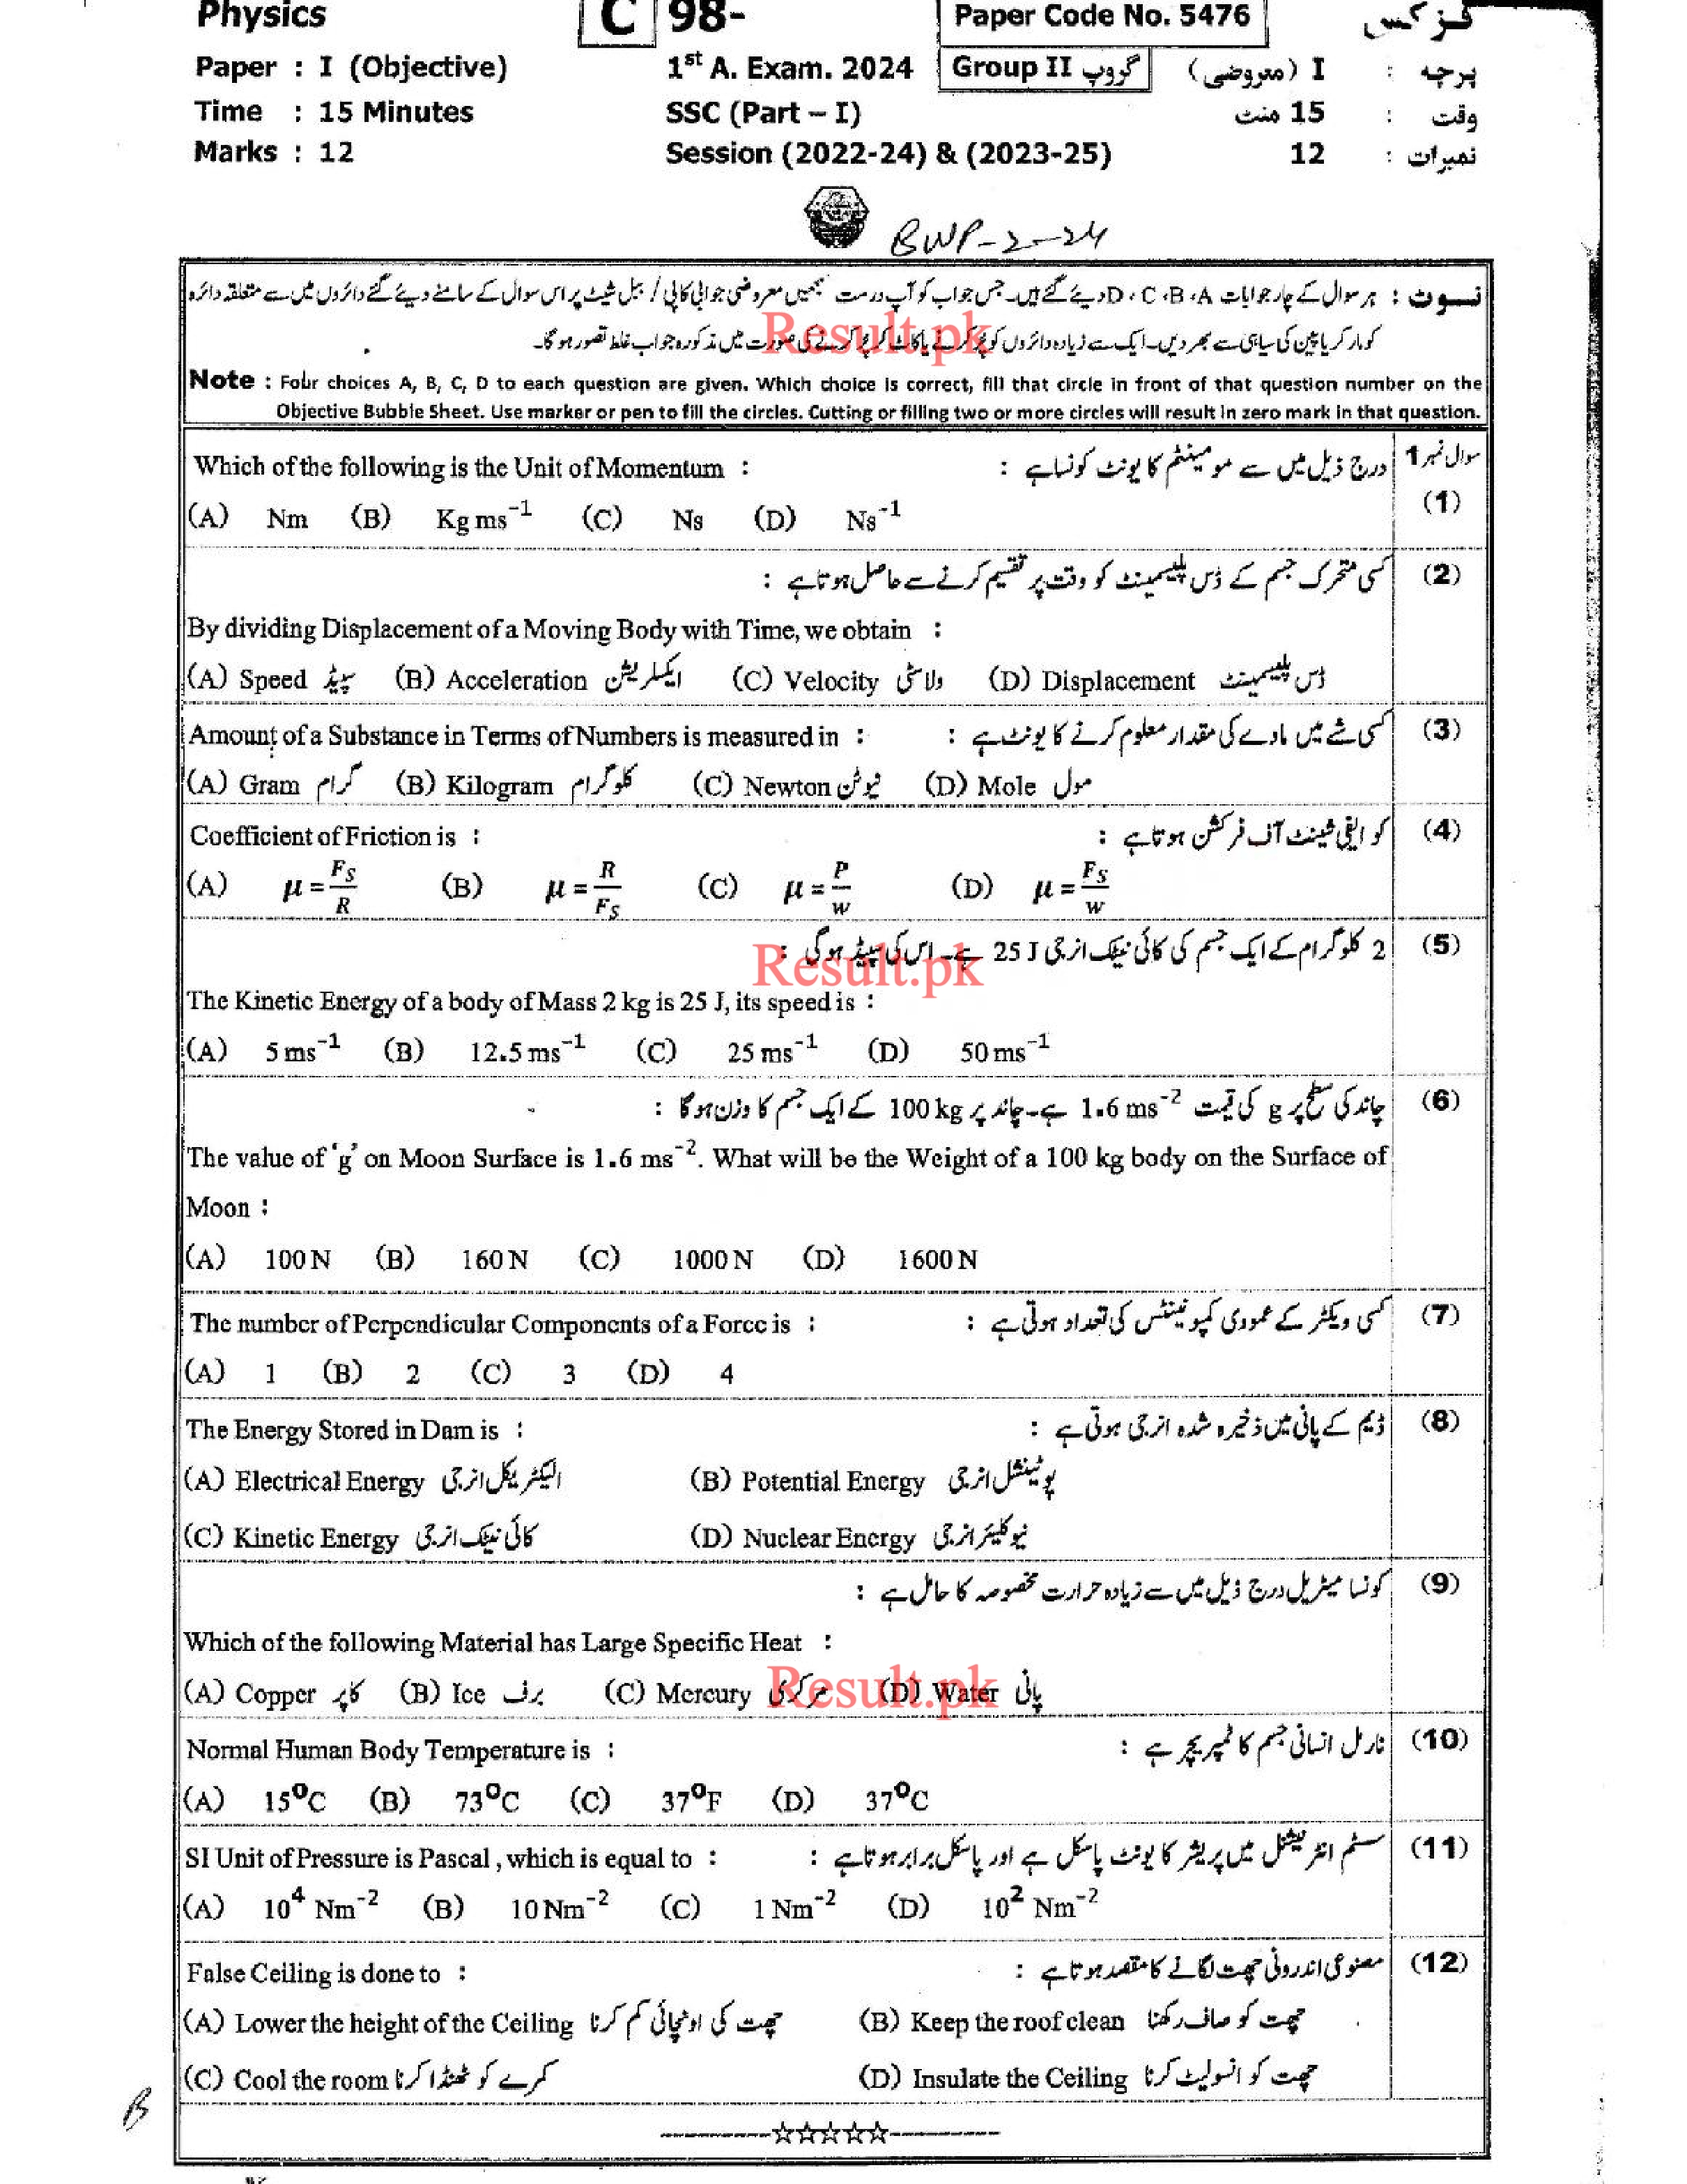 Physics C 98- Paper Code No. 5476 فزکس
Paper : I (Objective) 1st A. Exam. 2024 Group II گروپ پرچہ : I (معروضی)
Time : 15 Minutes SSC (Part – I) وقت : 15 منٹ
Marks : 12 Session (2022-24) & (2023-25) نمبرات : 12
BWP-2-24
نوٹ : ہر سوال کے چار جوابات D ، C ، B ، A دیئے گئے ہیں۔ جس جواب کو آپ درست سمجھیں معروضی جوابی کاپی / ببل شیٹ پر اس سوال کے سامنے دیئے گئے دائروں میں سے متعلقہ دائرہ
کو مارکر یا پین کی سیاہی سے بھر دیں۔ ایک سے زیادہ دائروں کو پُر کرنے یا کاٹ کر پُر کرنے کی صورت میں مذکورہ جواب غلط تصور ہو گا۔
Result.pk
Note : Four choices A, B, C, D to each question are given. Which choice is correct, fill that circle in front of that question number on the
Objective Bubble Sheet. Use marker or pen to fill the circles. Cutting or filling two or more circles will result in zero mark in that question.
Which of the following is the Unit of Momentum : درج ذیل میں سے مومینٹم کا یونٹ کونسا ہے : سوال نمبر 1
(1)
(A) Nm (B) Kg ms⁻¹ (C) Ns (D) Ns⁻¹
کسی متحرک جسم کے ڈس پلیسمینٹ کو وقت پر تقسیم کرنے سے حاصل ہوتا ہے : (2)
By dividing Displacement of a Moving Body with Time, we obtain :
(A) Speed سپیڈ (B) Acceleration ایکسلریشن (C) Velocity ولاسٹی (D) Displacement ڈس پلیسمینٹ
Amount of a Substance in Terms of Numbers is measured in : کسی شے میں مادے کی مقدار معلوم کرنے کا یونٹ ہے : (3)
(A) Gram گرام (B) Kilogram کلوگرام (C) Newton نیوٹن (D) Mole مول
Coefficient of Friction is : کو ایفی شینٹ آف فرکشن ہوتا ہے : (4)
(A) μ = Fs/R (B) μ = R/Fs (C) μ = P/w (D) μ = Fs/w
2 کلوگرام کے ایک جسم کی کائی نیٹک انرجی 25 J ہے۔ اس کی سپیڈ ہو گی : (5)
Result.pk
The Kinetic Energy of a body of Mass 2 kg is 25 J, its speed is :
(A) 5 ms⁻¹ (B) 12.5 ms⁻¹ (C) 25 ms⁻¹ (D) 50 ms⁻¹
چاند کی سطح پر g کی قیمت 1.6 ms⁻² ہے۔ چاند پر 100 kg کے ایک جسم کا وزن ہو گا : (6)
The value of 'g' on Moon Surface is 1.6 ms⁻². What will be the Weight of a 100 kg body on the Surface of
Moon :
(A) 100 N (B) 160 N (C) 1000 N (D) 1600 N
The number of Perpendicular Components of a Force is : کسی ویکٹر کے عمودی کمپونینٹس کی تعداد ہوتی ہے : (7)
(A) 1 (B) 2 (C) 3 (D) 4
The Energy Stored in Dam is : ڈیم کے پانی میں ذخیرہ شدہ انرجی ہوتی ہے : (8)
(A) Electrical Energy الیکٹریکل انرجی (B) Potential Energy پوٹینشل انرجی
(C) Kinetic Energy کائی نیٹک انرجی (D) Nuclear Energy نیوکلیئر انرجی
کونسا میٹریل درج ذیل میں سے زیادہ حرارت مخصوصہ کا حامل ہے : (9)
Which of the following Material has Large Specific Heat :
(A) Copper کاپر (B) Ice برف (C) Mercury مرکری (D) Water پانی
Result.pk
Normal Human Body Temperature is : نارمل انسانی جسم کا ٹمپریچر ہے : (10)
(A) 15⁰C (B) 73⁰C (C) 37⁰F (D) 37⁰C
SI Unit of Pressure is Pascal , which is equal to : سسٹم انٹرنیشنل میں پریشر کا یونٹ پاسکل ہے اور پاسکل برابر ہوتا ہے : (11)
(A) 10⁴ Nm⁻² (B) 10 Nm⁻² (C) 1 Nm⁻² (D) 10² Nm⁻²
False Ceiling is done to : مصنوعی اندرونی چھت لگانے کا مقصد ہوتا ہے : (12)
(A) Lower the height of the Ceiling چھت کی اونچائی کم کرنا (B) Keep the roof clean چھت کو صاف رکھنا
(C) Cool the room کمرے کو ٹھنڈا کرنا (D) Insulate the Ceiling چھت کو انسولیٹ کرنا
----------☆☆☆☆☆----------